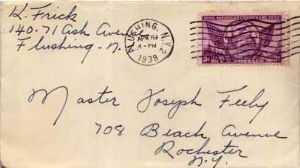 K. Frick
140-71 Ash Avenue
Flushing - N.Y.
FLUSHING, N.Y. 2
APR 19
4-PM
1938
Master Joseph Feely
708 Beach Avenue
Rochester
N.Y.